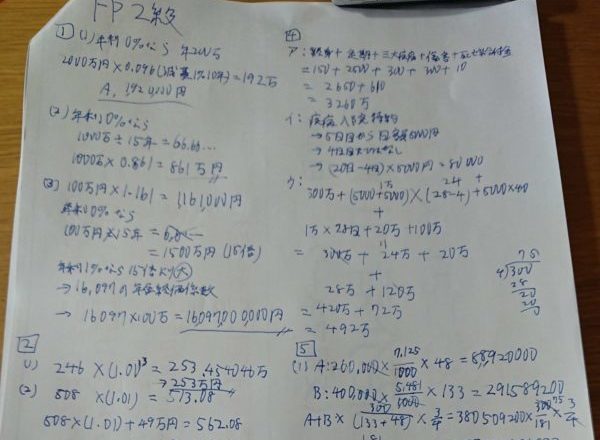 FP 2級
1 (1) 年利0%なら 年200万
2000万円×0.096(減債,1%10年)=192万
A, 1,920,000円
(2) 年利0%なら
1000万÷15年=66.66...
1000万×0.861=861万円
(3) 100万円×1.161=1,161,000円
年利0%なら
100万円×15年=
=1500万円(15倍)
年利1%なら15倍より大
→16.097の年金終価係数
→16.097×100万=16,097,000,000円
2
(1) 246×(1.01)³=253.454046万
→253万円
(2) 508×(1.01)=513.08
508×(1.01)+49万=562.08
4
ア:終身+定期+三大疾病+傷害+
=150+2500+300+300+10
=2650+610
=3260万
イ:疾病入院特約
→5日目から日額5000円
→4日目
→(20日-4日)×5000円=80000
ウ:
300万+(5000+5000)×(28-4)+5000×40
1万 24
+
1万×28日+20万+100万
=300万+24万+20万
+
28万+120万
=420万+72万
=492万
75
4)300
28
20
20
0
5
(1) A:260,000×7.125/1000×48=88,920000
B:400,000×5.481/1000×133=291589200
A+B×300/(133+48)×3/4=380509200×300/181×3/4
75
181